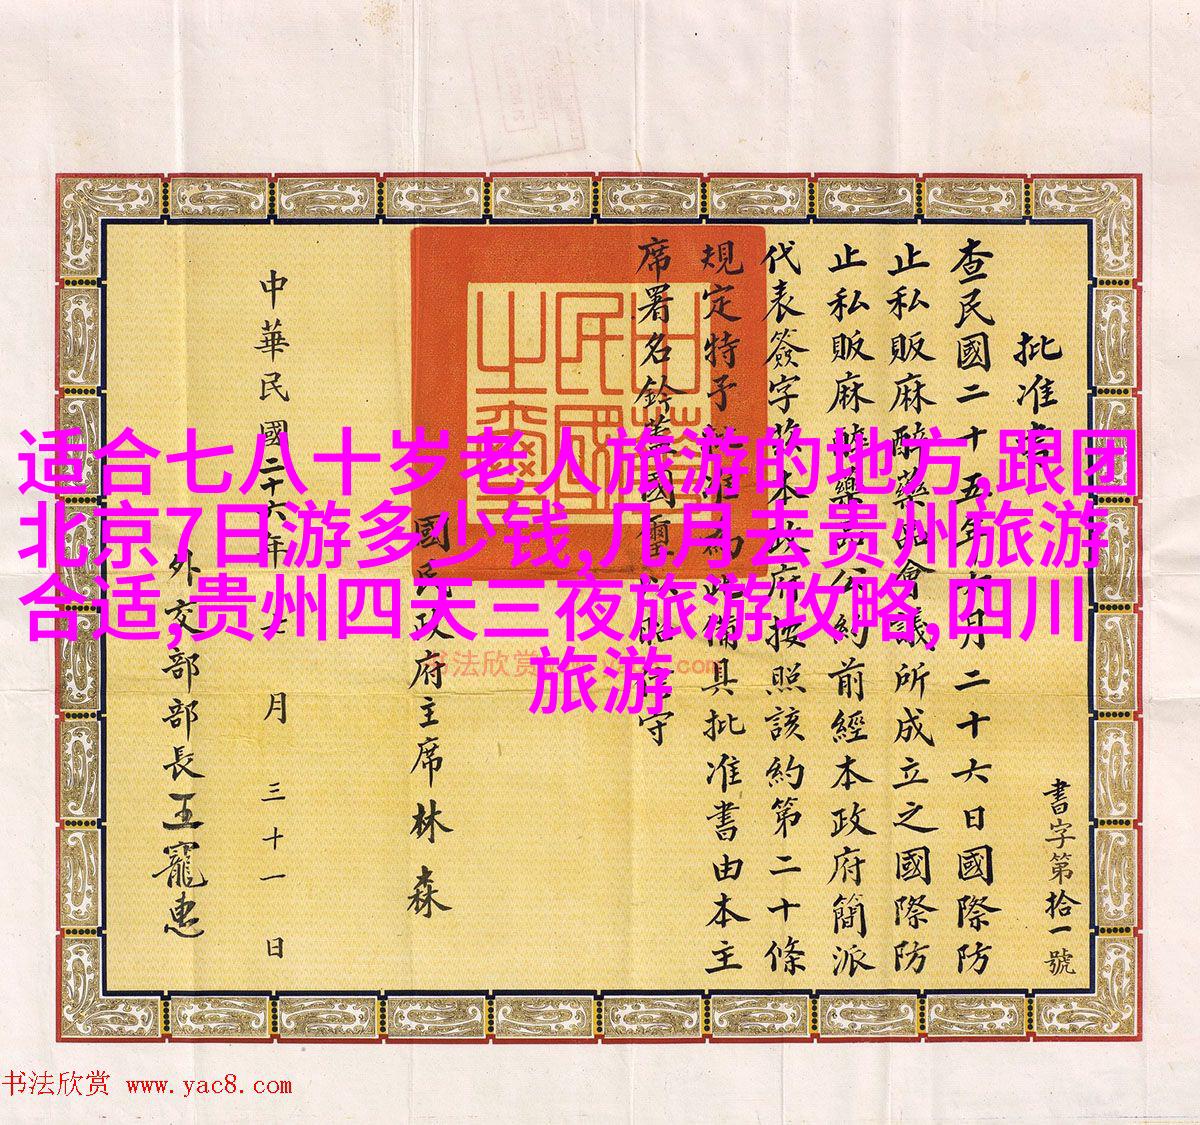 書字第拾一號
批准書
查民國二十五年六月二十六日國際防
止私販麻醉藥品會議所成立之國際防
止私販麻醉藥品公約前經本政府簡派
代表簽字茲本政府按照該約第二十條
規定特予批准為此備具批准書由本主
席署名鈐蓋國璽以昭信守
中華民國之璽
國民政府主席林森
中華民國二十六年七月三十一日
外交部部長王寵惠
适合七八十岁老人旅游的地方,跟团
北京7日游多少钱,几月去贵州旅游
合适,贵州四天三夜旅游攻略,四川
旅游
书法欣赏 www.yac8.com